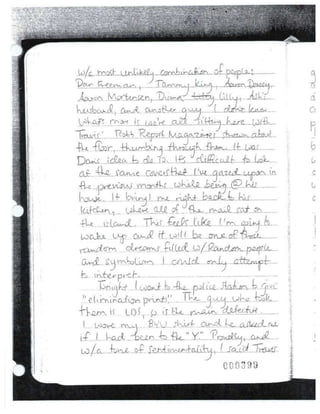 w/c most unlikely combination of people:
Dan Freeman, Tammy King, Aaron Dewey,
Aaron Mortensen, Dume, Lilly, Ash's
husband, and another guy I dont know.
Whats more is we're all sitting here with
Travis' Robb Report Magazines thrown about
the floor, thumbing through them. It was
Dan's idea to do so. It's difficult to look
at the same covers that I've gazed upon in
the previous months while being @ his
house. It brings me right back to his
kitchen, where all of the mail sat on
the island. This feels like I'm going to
wake up and it will be one of those
random dreams filled w/ Random people
and symbolism I could only attempt
to interpret.
Tonight I went to the police station to give
"elimination prints". The guy who took
them is LDS, & is the main detective.
I wore my BYU shirt and he asked me
if I had been to the "Y." Proudly, and
w/ a tone of sentimentality, I said Travis
000399